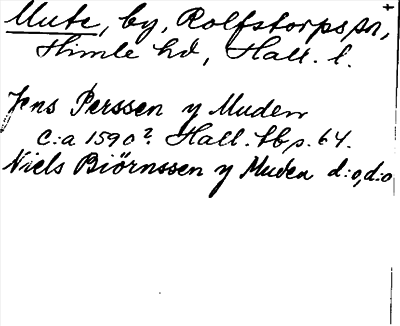 Mute, by, Rolfstorps sn,
Himle hd, Hall. l.
Jens Perssen y Muden
c:a 1590? Hall. tb s. 64.
Niels Biörnssen y Muden d:o, d:o